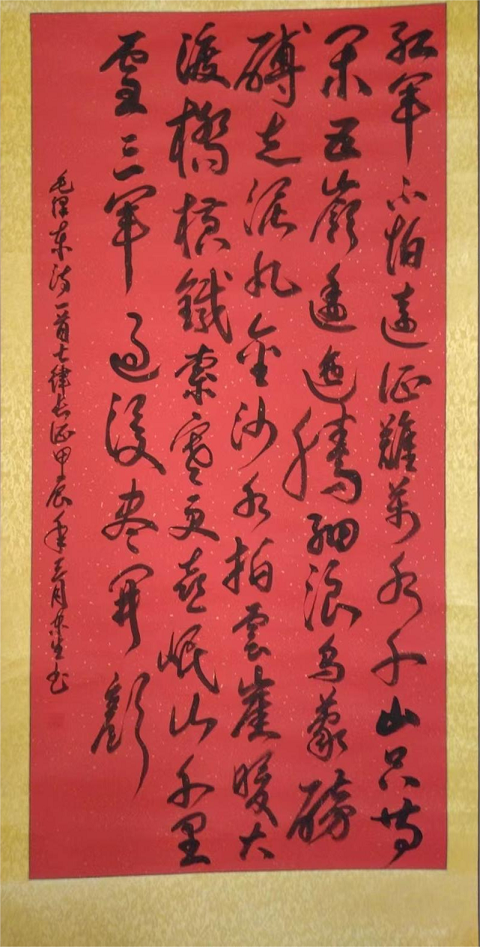 红军不怕远征难万水千山只等
闲五岭逶迤腾细浪乌蒙磅
礴走泥丸金沙水拍云崖暖大
渡桥横铁索寒更喜岷山千里
雪三军过后尽开颜
毛泽东诗一首七律长征甲辰年三月东生书